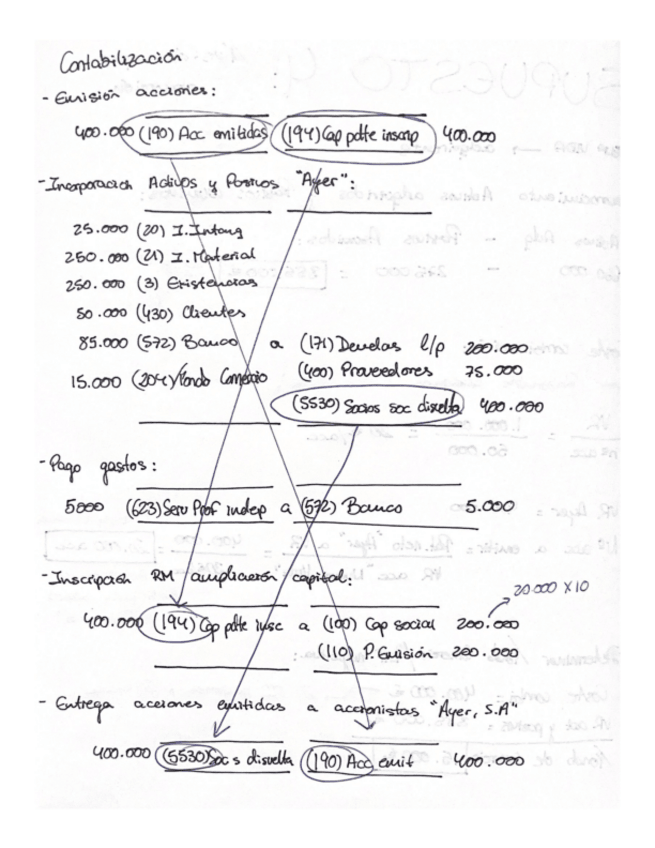 Contabilización
- Emisión acciones:
400.000 (190) Acc emitidas (194) Cap pdte inscrip 400.000
- Incorporación Activos y Pasivos "Ayer":
25.000 (20) I. Intang
250.000 (21) I. Material
250.000 (3) Existencias
50.000 (430) Clientes
85.000 (572) Banco a (171) Deudas l/p 200.000
15.000 (204) Fondo Comercio (400) Proveedores 75.000
(5530) Socios soc disuelta 400.000
- Pago gastos:
5000 (623) Serv Prof indep a (572) Banco 5.000
- Inscripción RM ampliación capital:
20.000 X 10
400.000 (194) Cap pdte insc a (100) Cap social 200.000
(110) P. Emisión 200.000
- Entrega acciones emitidas a accionistas "Ayer, S.A"
400.000 (5530) Soc s disuelta (190) Acc emit 400.000